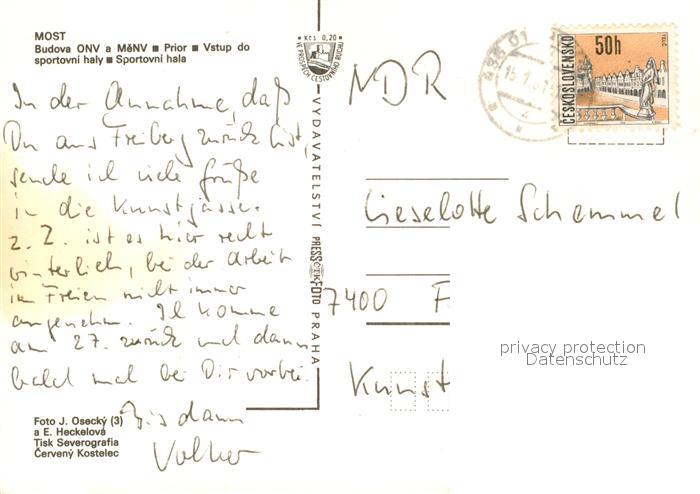 MOST
Budova ONV a MěNV ■ Prior ■ Vstup do
sportovní haly ■ Sportovní hala
In der Annahme, daß
Du aus Freiberg zurück bist,
sende ich viele Grüße
in die Kunstgasse.
z. Z. ist es hier recht
winterlich, bei der Arbeit
im Freien nicht immer
angenehm. Ich komme
am 27. zurück und dann
bald mal bei Dir vorbei.
Bis dann
Volker
Foto J. Osecký (3)
a E. Heckelová
Tisk Severografia
Červený Kostelec
Kčs 0,20
VE PROSPĚCH CESTOVNÍHO RUCHU
VYDAVATELSTVÍ PRESSFOTO PRAHA
ČTK
ČESKOSLOVENSKO
50h
NDR
Lieselotte Schemmel
7400 F
Kunst
privacy protection
Datenschutz